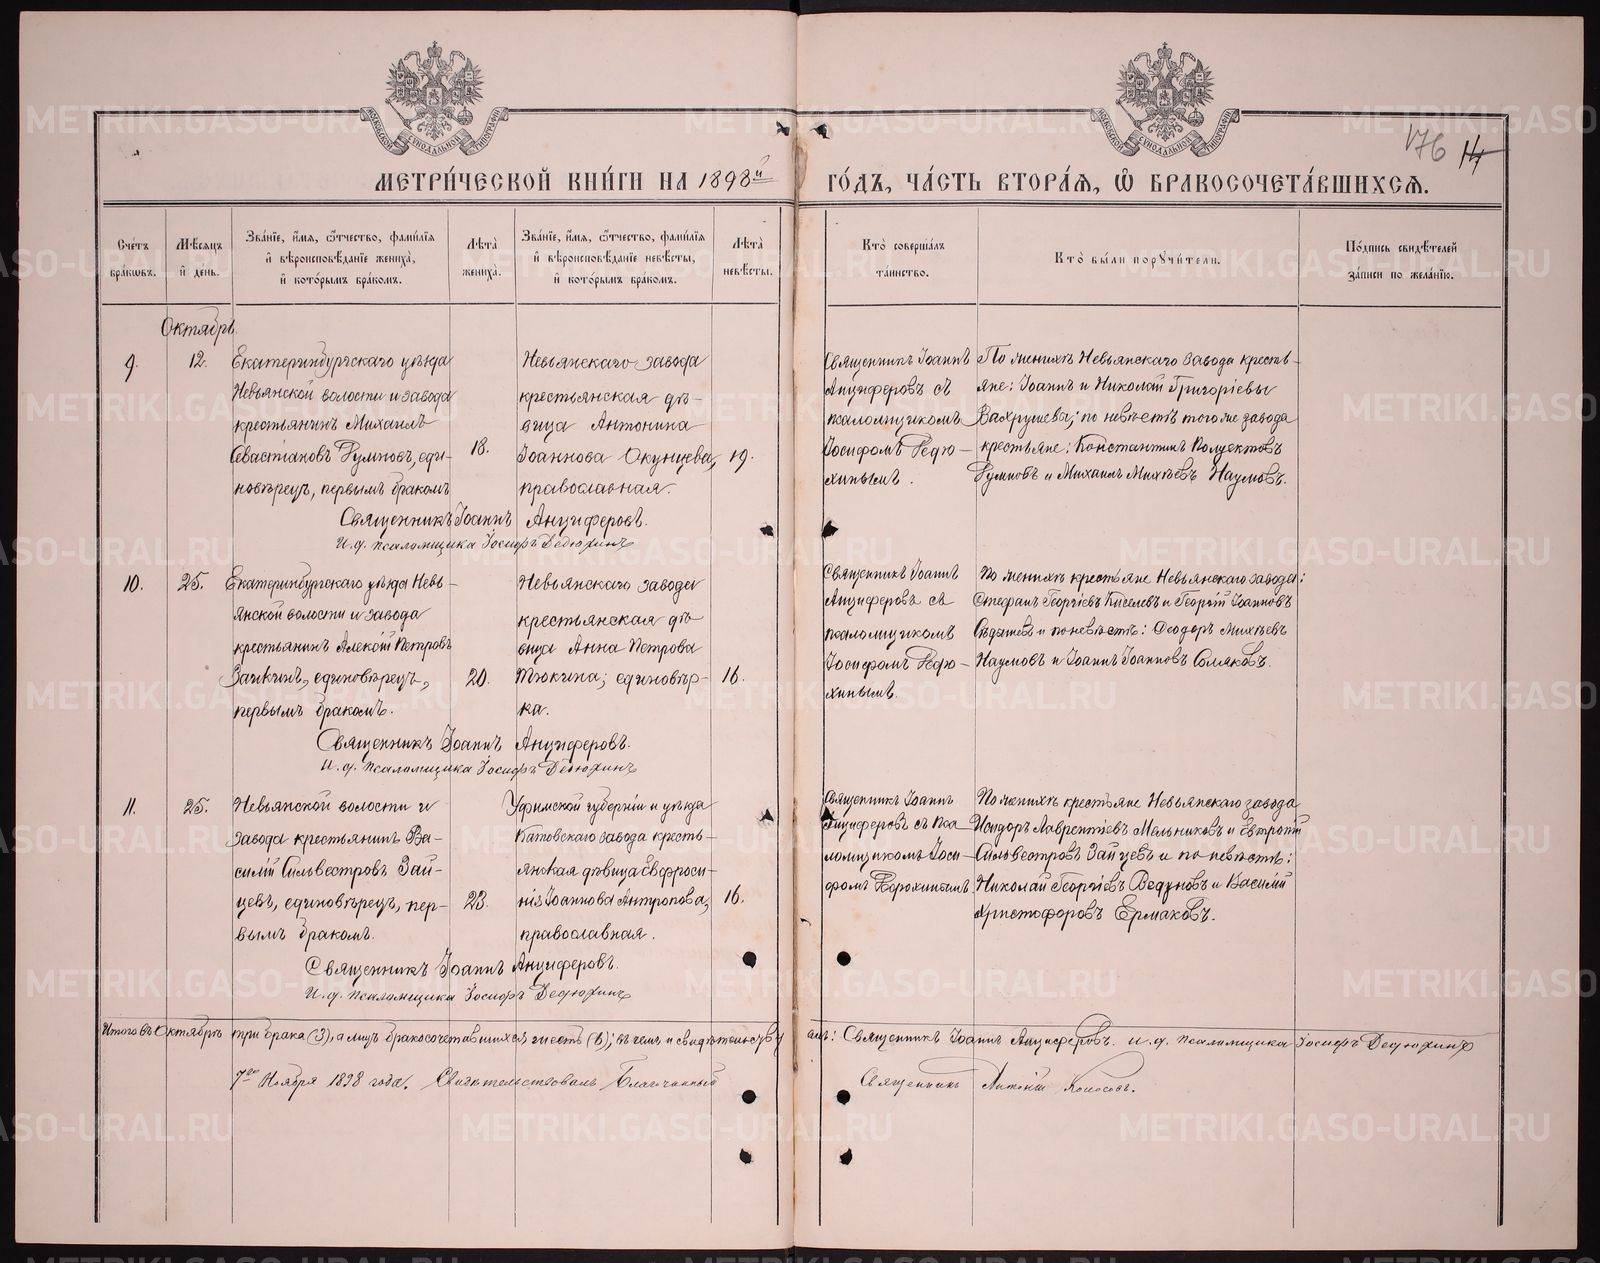 МЕТРИ́ЧЕСКОЙ КНИ́ГИ НА 1898й ГО́ДЪ, ЧА́СТЬ ВТОРА́Я, Ѡ БРАКОСОЧЕТА́ВШИХСЯ.
176 14
Сче́тъ бра́кѡвъ.
Мѣ́сяцъ и҆ де́нь.
Зва́нїе, и҆́мя, ѻ҆́тчество, фами́лїя и҆ вѣроисповѣ́данїе жениха̀, и҆ кото́рымъ бра́комъ.
Лѣ́та жениха̀.
Зва́нїе, и҆́мя, ѻ҆́тчество, фами́лїя и҆ вѣроисповѣ́данїе невѣ́сты, и҆ кото́рымъ бра́комъ.
Лѣ́та невѣ́сты.
Кто̀ соверша́лъ та́инство.
Кто̀ бы́ли порꙋчи́тели.
По́дпись свидѣ́телей за́писи по жела́нїю.
Октябрь.
9.
12.
Екатеринбургскаго уѣзда
Невьянской волости и завода
крестьянинъ Михаилъ
Севастіановъ Румповъ, еди-
новѣрецъ, первымъ бракомъ
18.
Невьянскаго завода
крестьянская дѣ-
вица Антонина
Іоаннова Окунцева,
православная.
19.
Священникъ Іоаннъ
Анциферовъ съ
псаломщикомъ
Іосифомъ Дедю-
хинымъ.
По женихѣ Невьянскаго завода кресть-
яне: Іоаннъ и Николай Григоріевы
Вахрушевы; по невѣстѣ того же завода
крестьяне: Константинъ Полуектовъ
Румповъ и Михаилъ Михѣевъ Наумовъ.
Священникъ Іоаннъ Анциферовъ.
И. д. псаломщика Іосифъ Дедюхинъ
10.
25.
Екатеринбургскаго уѣзда Невь-
янской волости и завода
крестьянинъ Алексій Петровъ
Заикинъ, единовѣрецъ,
первымъ бракомъ.
20.
Невьянскаго завода
крестьянская дѣ-
вица Анна Петрова
Тюкина; единовѣр-
ка.
16.
Священникъ Іоаннъ
Анциферовъ съ
псаломщикомъ
Іосифомъ Дедю-
хинымъ.
По женихѣ крестьяне Невьянскаго завода:
Стефанъ Георгіевъ Киселевъ и Георгій Іоанновъ
и по невѣстѣ: Ѳеодоръ Михѣевъ
Наумовъ и Іоаннъ Іоанновъ Соляковъ.
Священникъ Іоаннъ Анциферовъ.
И. д. псаломщика Іосифъ Дедюхинъ
11.
25.
Невьянской волости и
завода крестьянинъ Ва-
силій Сильвестровъ Зай-
цевъ, единовѣрецъ, пер-
вымъ бракомъ.
23.
Уфимской губерніи и уѣзда
Катовскаго завода кресть-
янская дѣвица Евфроси-
нія Іоаннова Антропова,
православная.
16.
Священникъ Іоаннъ
Анциферовъ съ пса-
ломщикомъ Іоси-
фомъ Дедюхинымъ
По женихѣ крестьяне Невьянскаго завода
Исидоръ Лаврентіевъ Мельниковъ и Евтропій
Сильвестровъ Зайцевъ и по невѣстѣ:
Николай Георгіевъ Ведуновъ и Василій
Христофоровъ Ермаковъ.
Священникъ Іоаннъ Анциферовъ.
И. д. псаломщика Іосифъ Дедюхинъ
Итого въ Октябрѣ три брака (3), а лицъ бракосочетавшихся шесть (6); въ чемъ и свидѣтельству емъ: Священникъ Іоаннъ Анциферовъ. и. д. псаломщика Іосифъ Дедюхинъ
7го Ноября 1898 года. Свидѣтельствовалъ Благочинный Священникъ Антоній Колосовъ.
METRIKI.GASO-URAL.RU